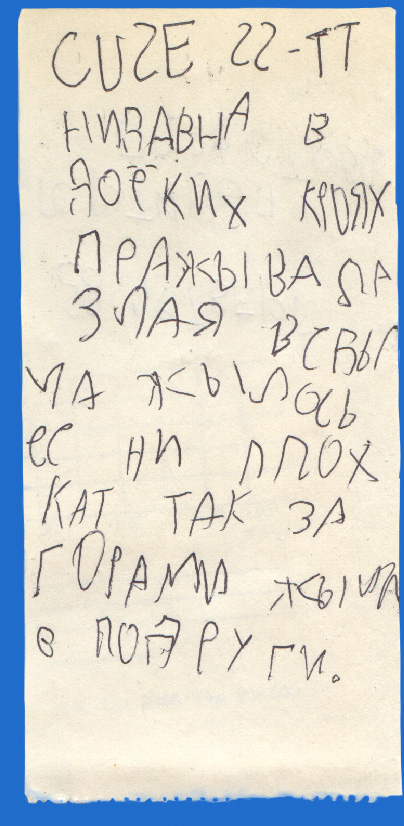 CUZE 22-TT
НИДАВНА В
ДОЁКИХ КРЫЯХ
ПРАЖЫВАЛА
ЗЛАЯ ВСВЫЛ
ЛА ЖЫЛОСЬ
ЕС НИ ПЛОХ
КАТ ТАК ЗА
ГОРАМИ ЖЫЛА
В ПОДРУГИ.